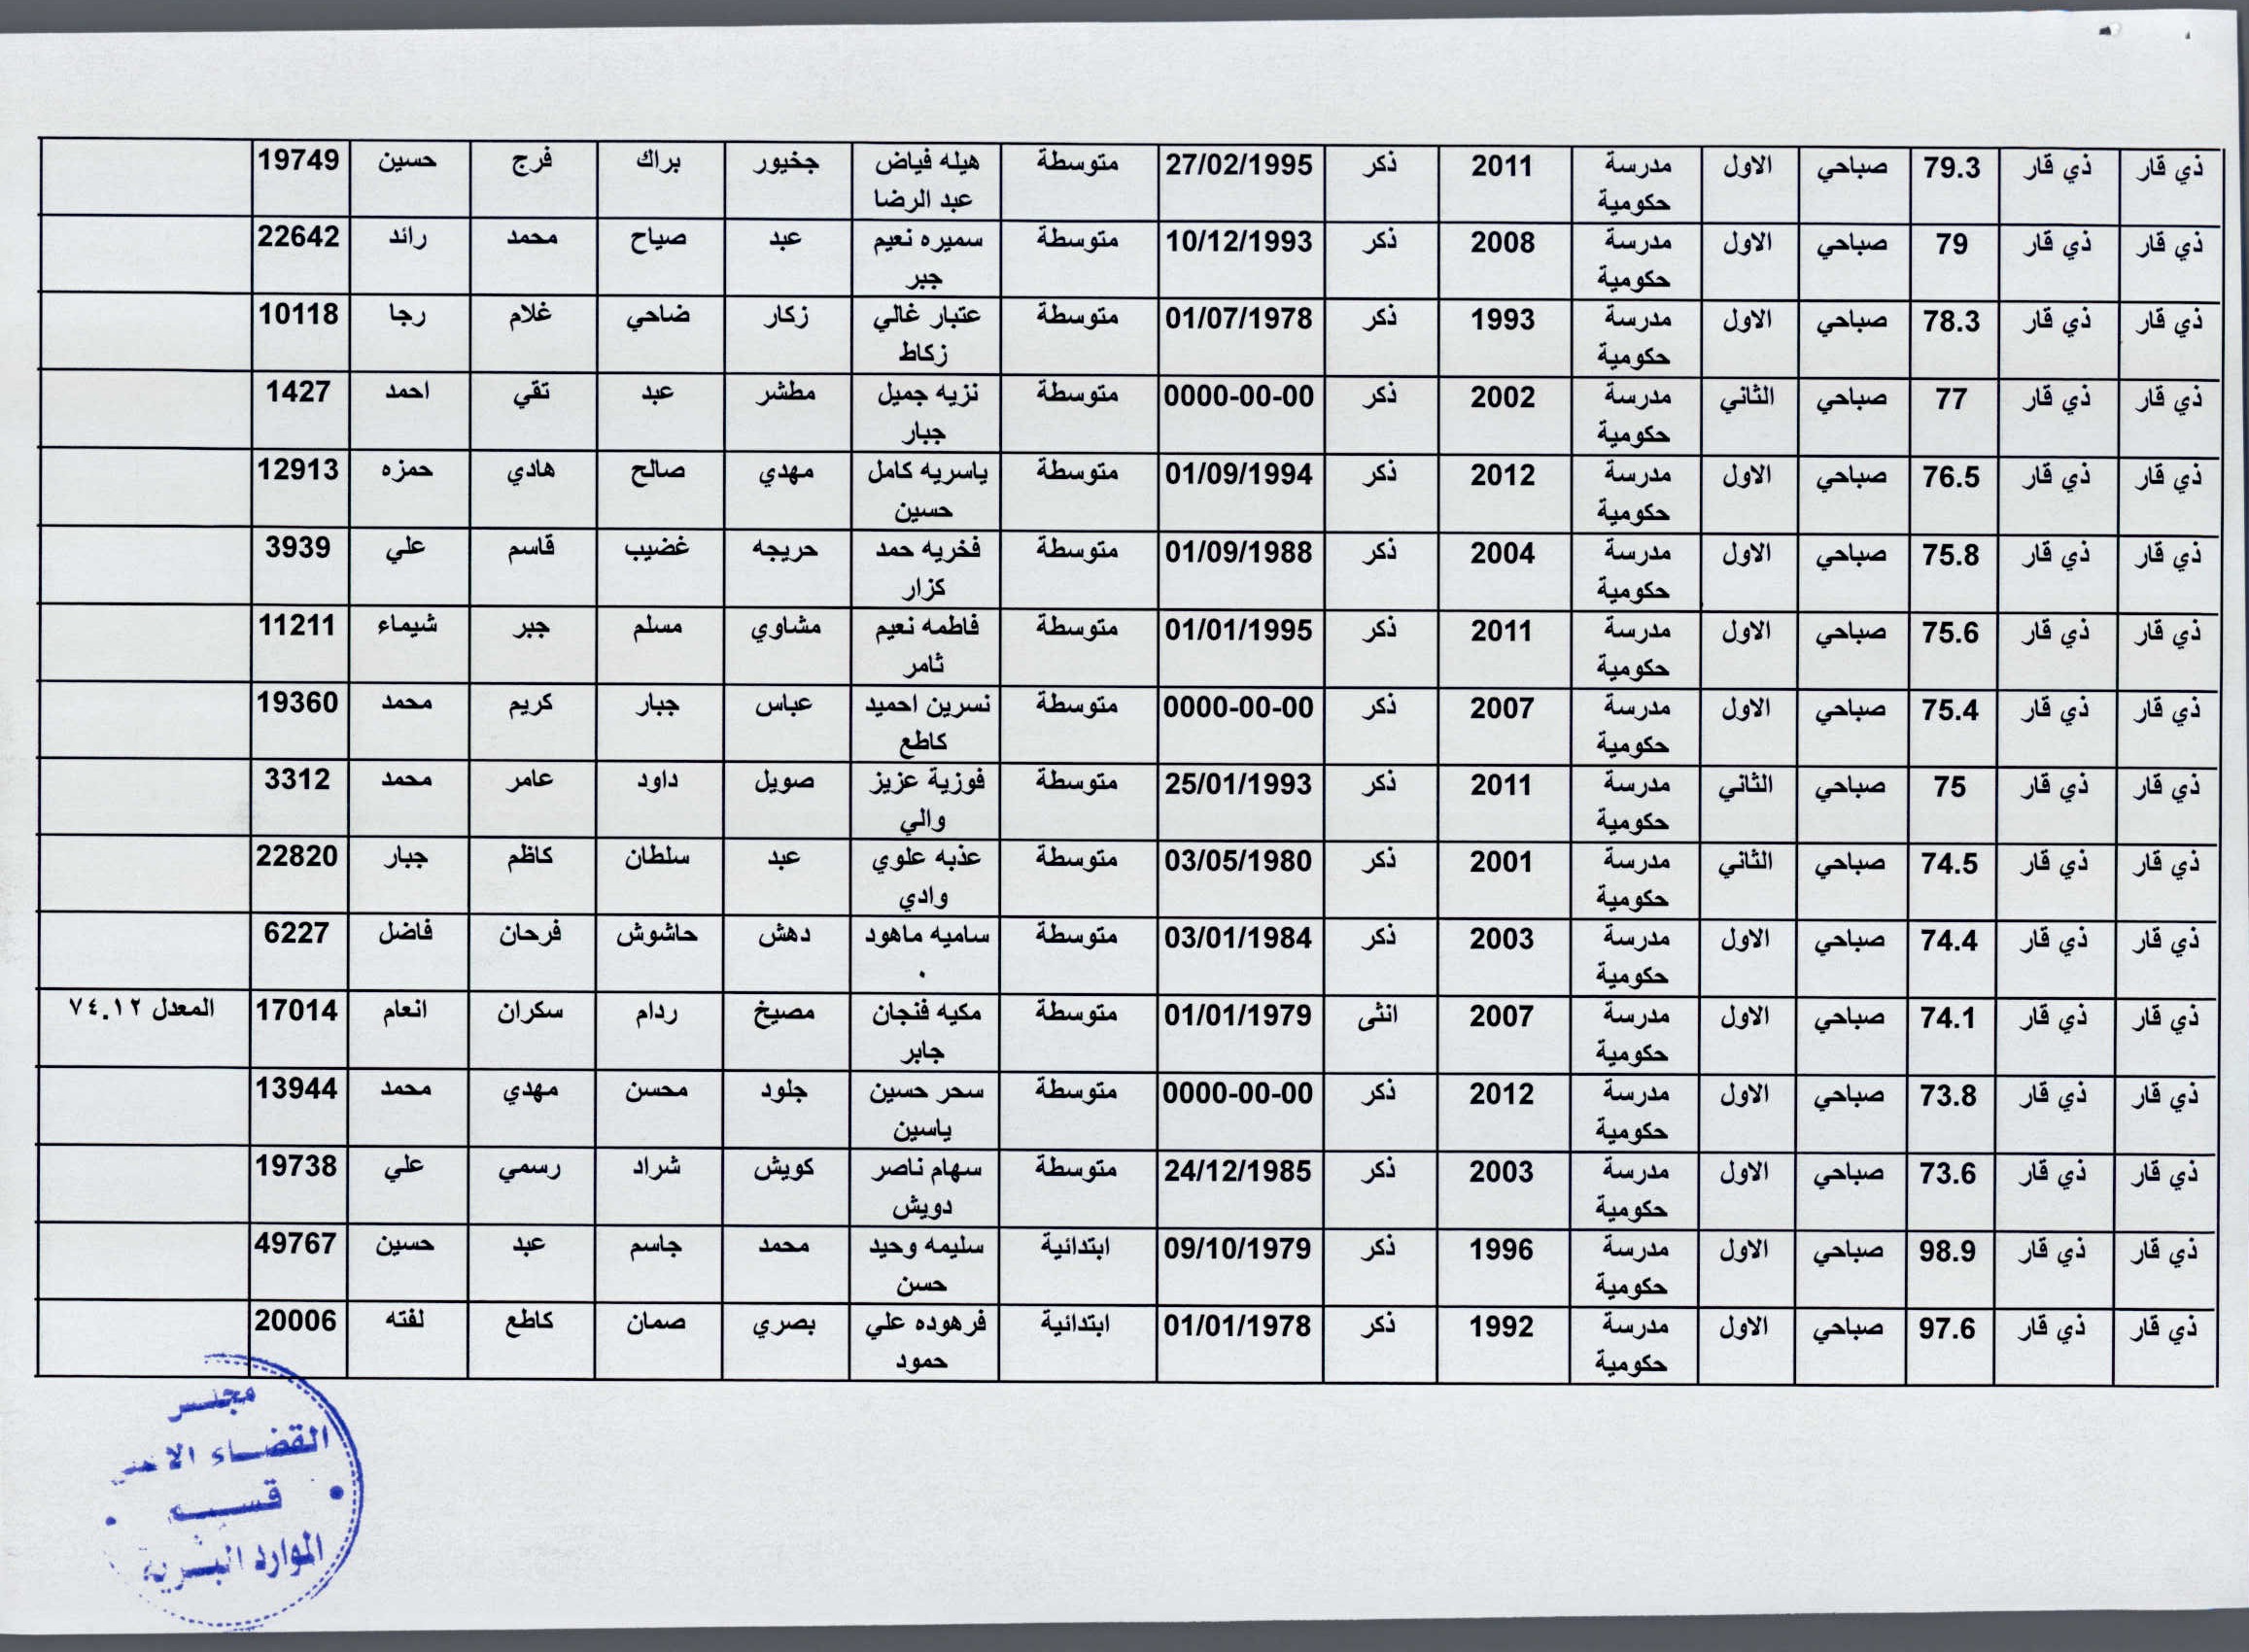 19749 حسين فرج براك جخيور هيله فياض متوسطة 27/02/1995 ذكر 2011 مدرسة الاول صباحي 79.3 ذي قار ذي قار
عبد الرضا حكومية
22642 رائد محمد صياح عبد سميره نعيم متوسطة 10/12/1993 ذكر 2008 مدرسة الاول صباحي 79 ذي قار ذي قار
جبر حكومية
10118 رجا غلام ضاحي زكار عتبار غالي متوسطة 01/07/1978 ذكر 1993 مدرسة الاول صباحي 78.3 ذي قار ذي قار
زكاط حكومية
1427 احمد تقي عبد مطشر نزيه جميل متوسطة 0000-00-00 ذكر 2002 مدرسة الثاني صباحي 77 ذي قار ذي قار
جبار حكومية
12913 حمزه هادي صالح مهدي ياسريه كامل متوسطة 01/09/1994 ذكر 2012 مدرسة الاول صباحي 76.5 ذي قار ذي قار
حسين حكومية
3939 علي قاسم غضيب حريجه فخريه حمد متوسطة 01/09/1988 ذكر 2004 مدرسة الاول صباحي 75.8 ذي قار ذي قار
كزار حكومية
11211 شيماء جبر مسلم مشاوي فاطمه نعيم متوسطة 01/01/1995 ذكر 2011 مدرسة الاول صباحي 75.6 ذي قار ذي قار
ثامر حكومية
19360 محمد كريم جبار عباس نسرين احميد متوسطة 0000-00-00 ذكر 2007 مدرسة الاول صباحي 75.4 ذي قار ذي قار
كاطع حكومية
3312 محمد عامر داود صويل فوزية عزيز متوسطة 25/01/1993 ذكر 2011 مدرسة الثاني صباحي 75 ذي قار ذي قار
والي حكومية
22820 جبار كاظم سلطان عبد عذبه علوي متوسطة 03/05/1980 ذكر 2001 مدرسة الثاني صباحي 74.5 ذي قار ذي قار
وادي حكومية
6227 فاضل فرحان حاشوش دهش ساميه ماهود متوسطة 03/01/1984 ذكر 2003 مدرسة الاول صباحي 74.4 ذي قار ذي قار
. حكومية
المعدل ٧٤.١٢ 17014 انعام سكران ردام مصيخ مكيه فنجان متوسطة 01/01/1979 انثى 2007 مدرسة الاول صباحي 74.1 ذي قار ذي قار
جابر حكومية
13944 محمد مهدي محسن جلود سحر حسين متوسطة 0000-00-00 ذكر 2012 مدرسة الاول صباحي 73.8 ذي قار ذي قار
ياسين حكومية
19738 علي رسمي شراد كويش سهام ناصر متوسطة 24/12/1985 ذكر 2003 مدرسة الاول صباحي 73.6 ذي قار ذي قار
دويش حكومية
49767 حسين عبد جاسم محمد سليمه وحيد ابتدائية 09/10/1979 ذكر 1996 مدرسة الاول صباحي 98.9 ذي قار ذي قار
حسن حكومية
20006 لفته كاطع صمان بصري فرهوده علي ابتدائية 01/01/1978 ذكر 1992 مدرسة الاول صباحي 97.6 ذي قار ذي قار
حمود حكومية
مجلس
القضاء الاعلى
قسم
الموارد البشرية